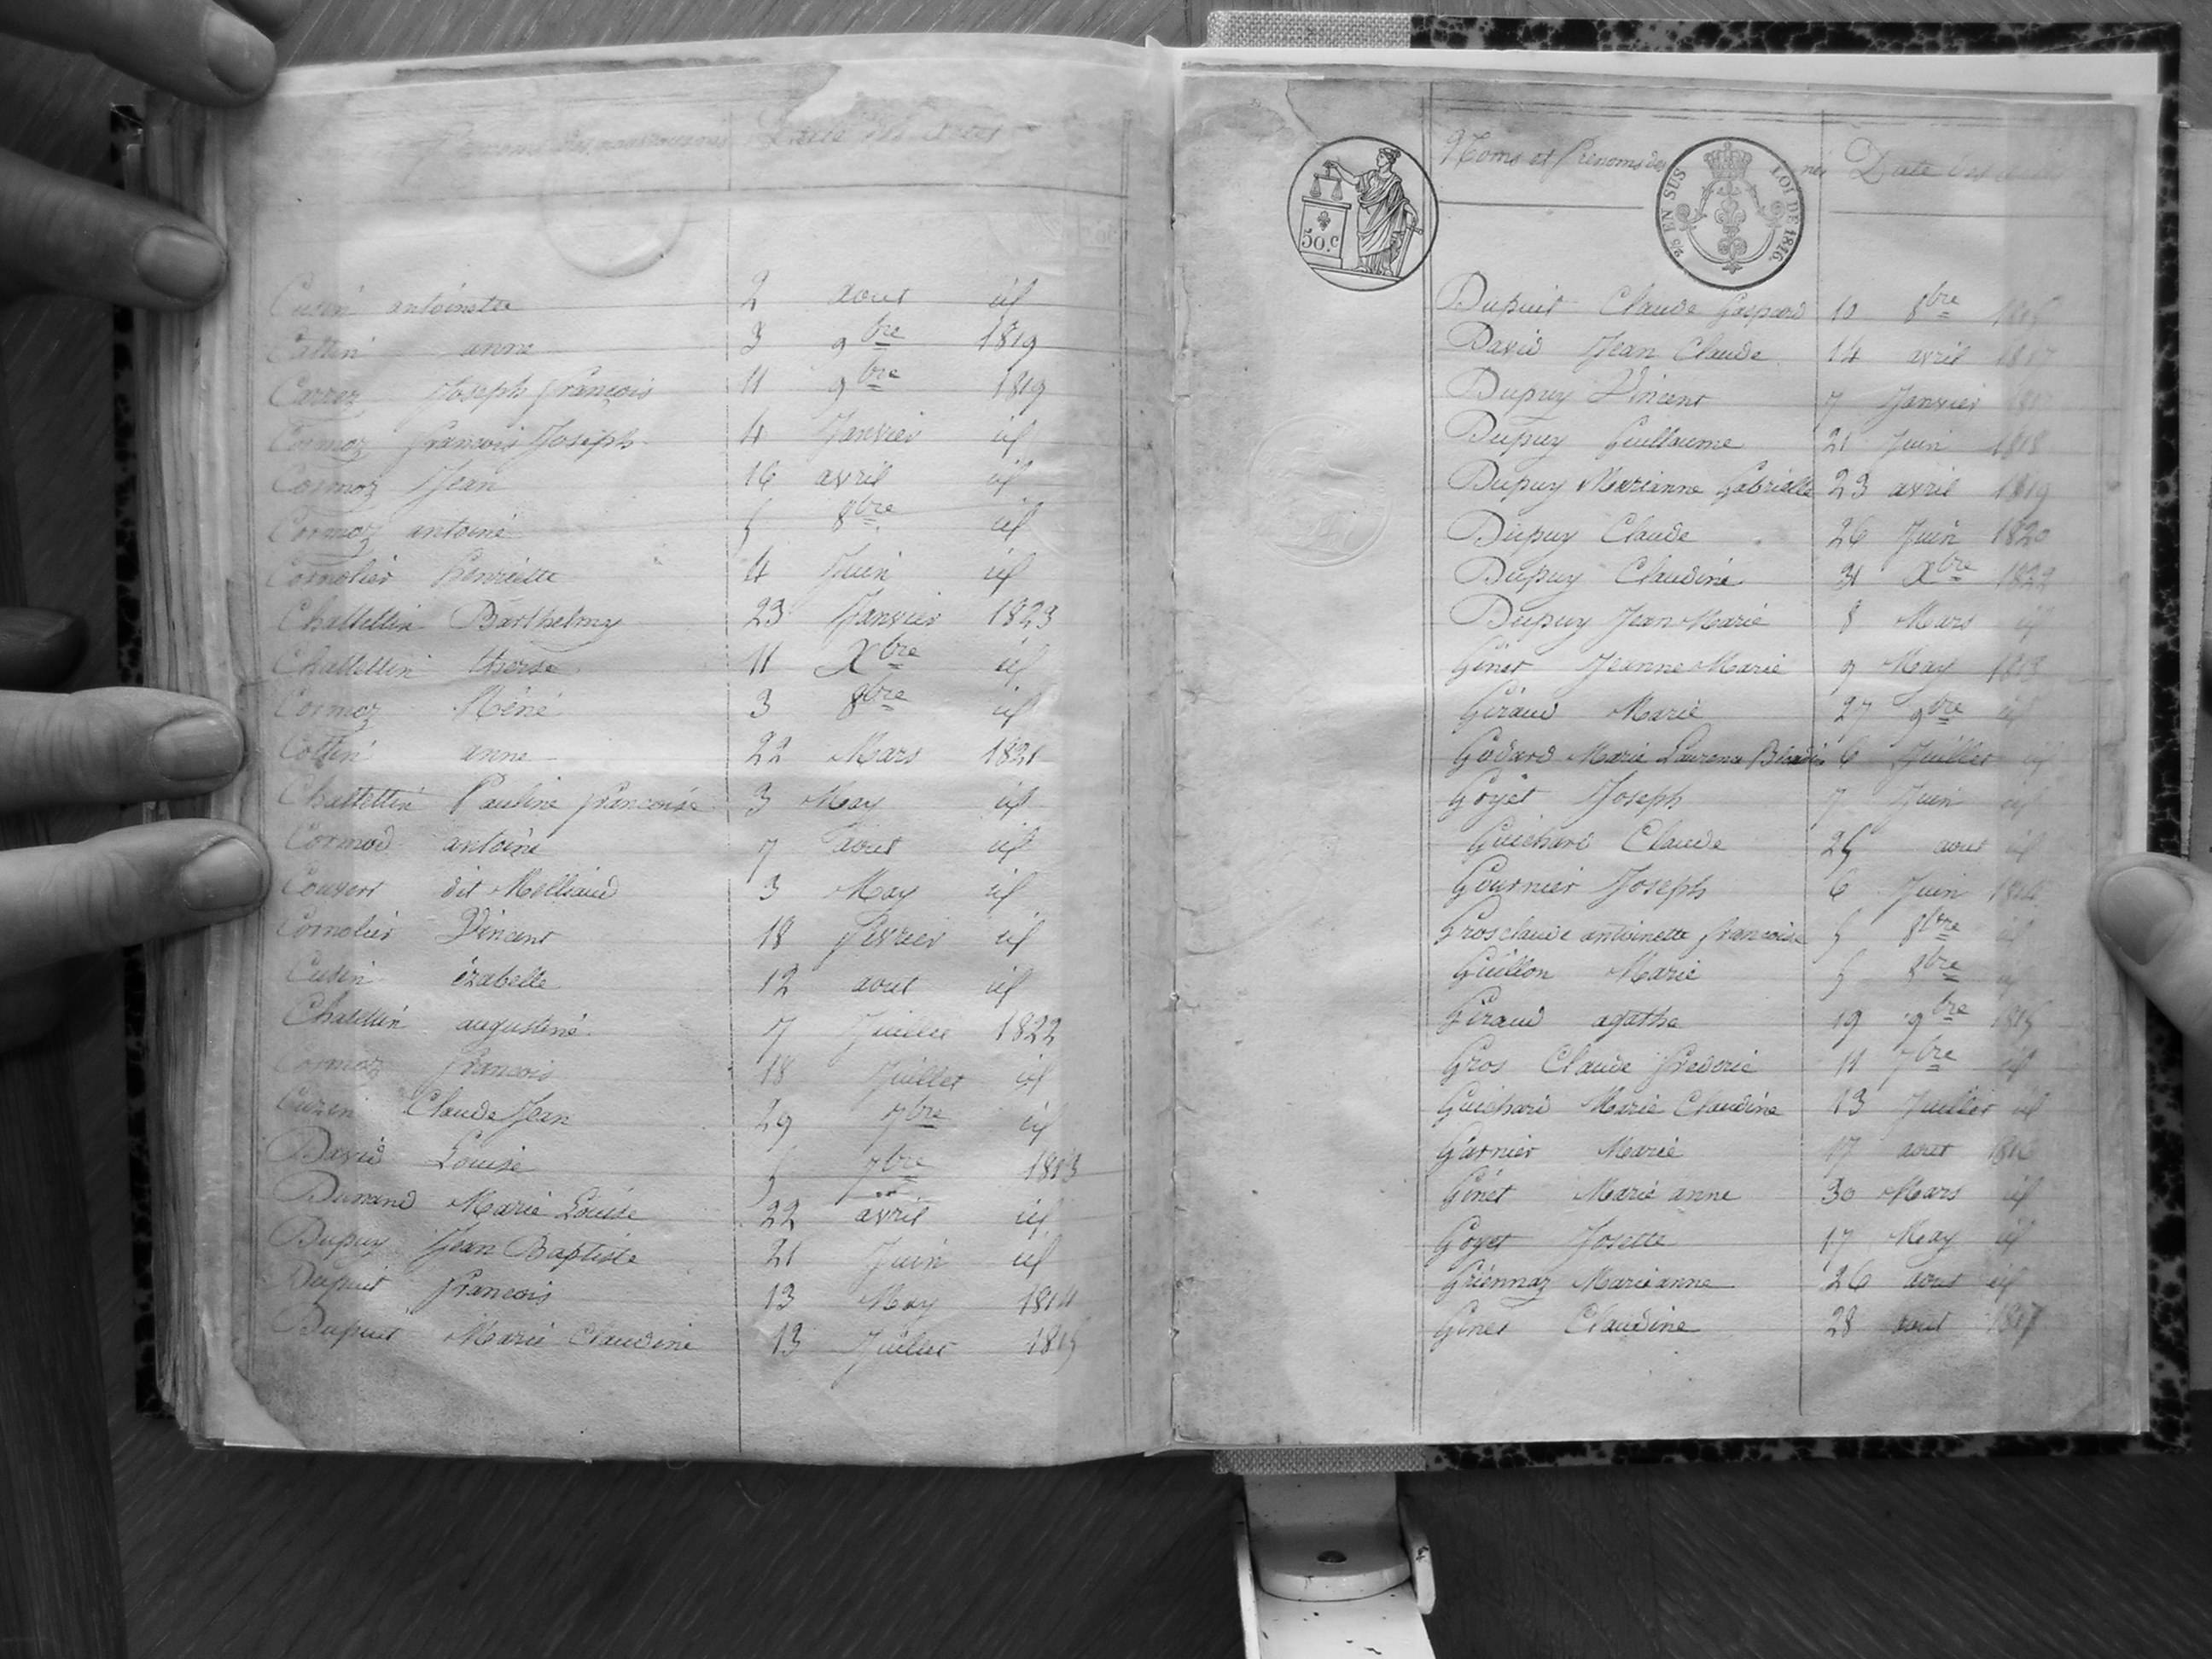 Date des actes
Cusin antoinette 2 aout id
Cattin anne 3 9bre 1819
Carrez Joseph françois 11 9bre 1819
Cormoz francois Joseph 4 Janvier id
Cormoz Jean 16 avril id
Cormoz antoine 5 8bre id
Cornolier henriette 4 Juin id
Chattellin Barthelmy 23 Janvier 1823
Chattellin therese 11 Xbre id
Cormoz Réné 3 8bre id
Cottin anne 22 Mars 1821
Chattettin Pauline francoise 3 May id
Cormod antoine 7 aout id
Couvert dit Melliaud 3 May id
Cornolier Vincent 18 fevrier id
Cusin izabelle 12 aout id
augustine 7 Juillet 1822
Cormoz francois 18 Juillet id
Cuzin Claude Jean 29 7bre id
David Louise 5 7bre 1813
Durand Marie Louise 22 avril id
Dupuy Jean Baptiste 21 Juin id
Dupuit francois 13 May 1814
Dupuit Marie Claudine 13 Juillet 1815
Noms et Prenoms des nés Date des actes
50.c
2/5 EN SUS LOI DE 1816.
Dupuit Claude Gaspard 10 8bre
David Jean Claude 14 avril 1817
Dupuy Vincent 7 Janvier
Dupuy Guillaume 21 Juin 1818
Dupuy Marianne Gabrielle 23 avril 1819
Dupuy Claude 26 Juin 1820
Dupuy Claudine 31 Xbre 1822
Dupuy Jean Marie 8 Mars id
Ginet Jeanne Marie 9 May 1813
Giraud Marie 27 9bre id
Godard Marie Laurence 6 Juillet id
Goyet Joseph 7 Juin id
Guichard Claude 25 aout id
Gournier Joseph 6 Juin 1814
Grosclaude antoinette francoise 5 8bre id
Guillon Marie 5 8bre id
Giraud agathe 19 9bre 1815
Gros Claude frederic 11 7bre id
Guichard Marie Claudine 13 Juillet id
Garnier Marie 17 aout 1816
Ginet Marie anne 30 Mars id
Goyet Josette 17 May id
Griennaz Marie anne 26 aout id
Ginet Claudine 28 aout 1817